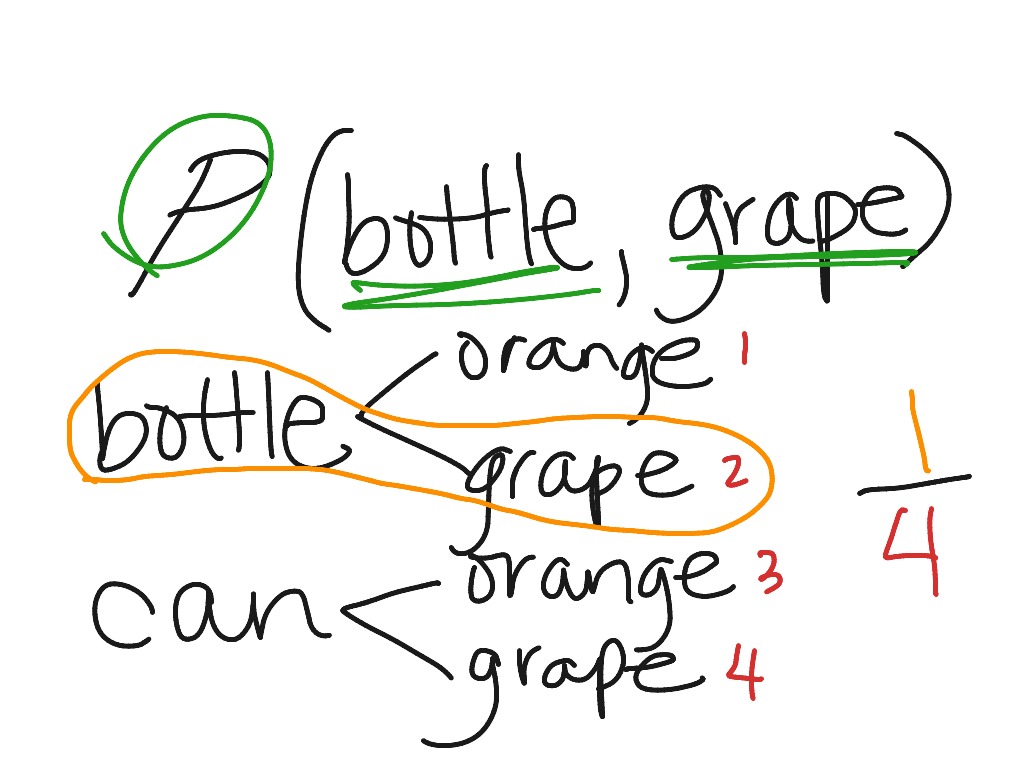 P (bottle, grape)
orange 1
bottle
grape 2
1
4
orange 3
can
grape 4